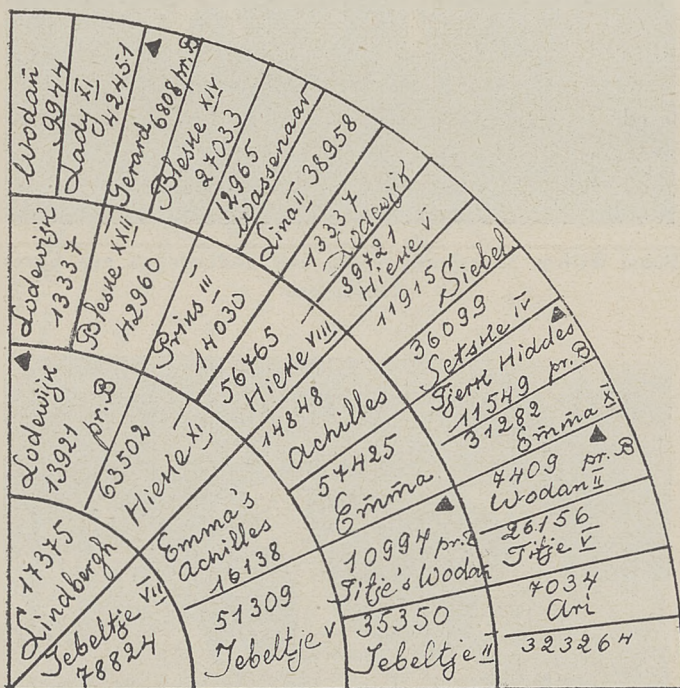 Wodan
9944
Lady XI
42451
Gerard
6808 pr.B
Bleske XIV
27033
12965
Wassenaar
Lina II 38958
13337
Lodewijk
39721
Hieke V
11915
Siebel
36099
Setske IV
Tjerk Hiddes
11549 pr.B
31282
Emma XI
7409 pr.B
Wodan II
26156
Titje V
7034
Ari
323264
Lodewijk
13337
Bleske XXII
42960
Prins III
14030
56765
Hieke VIII
14848
Achilles
54425
Emma
10994 pr.B
Titje's Wodan
35350
Jebeltje II
Lodewijk
13921 pr.B
63502
Hieke XI
Emma's
Achilles
16138
51309
Jebeltje V
17375
Lindbergh
Jebeltje VII
78824